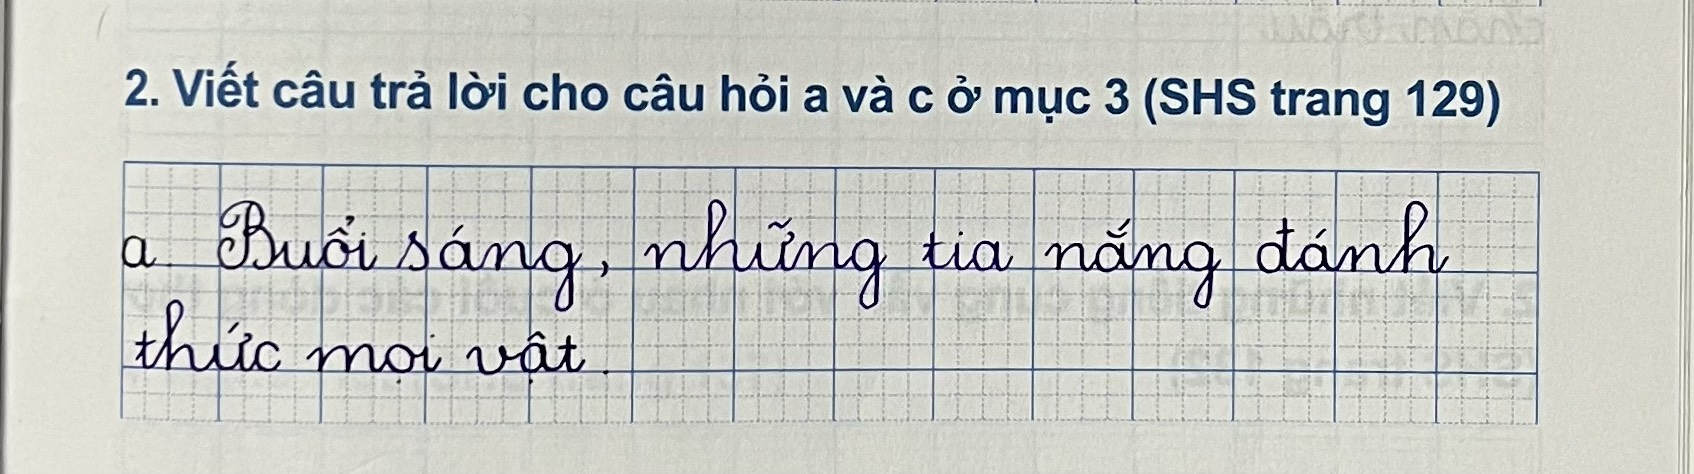 2. Viết câu trả lời cho câu hỏi a và c ở mục 3 (SHS trang 129)
a Buổi sáng, những tia nắng đánh
thức mọi vật.